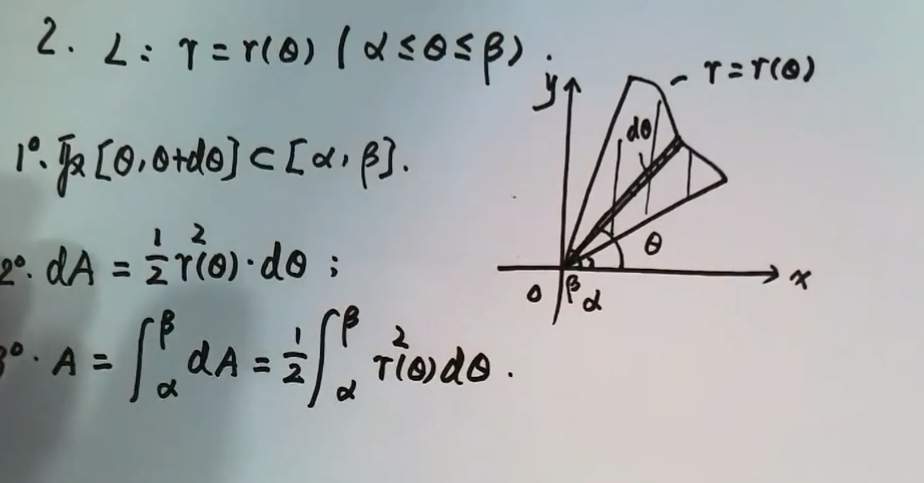 2. L: r = r(θ) (α ≤ θ ≤ β).
1°. 取 [θ, θ+dθ] ⊂ [α, β].
2°. dA = 1/2 r²(θ)·dθ ;
3°. A = ∫_α^β dA = 1/2 ∫_α^β r²(θ)dθ.
y
r = r(θ)
dθ
θ
x
0
β
α